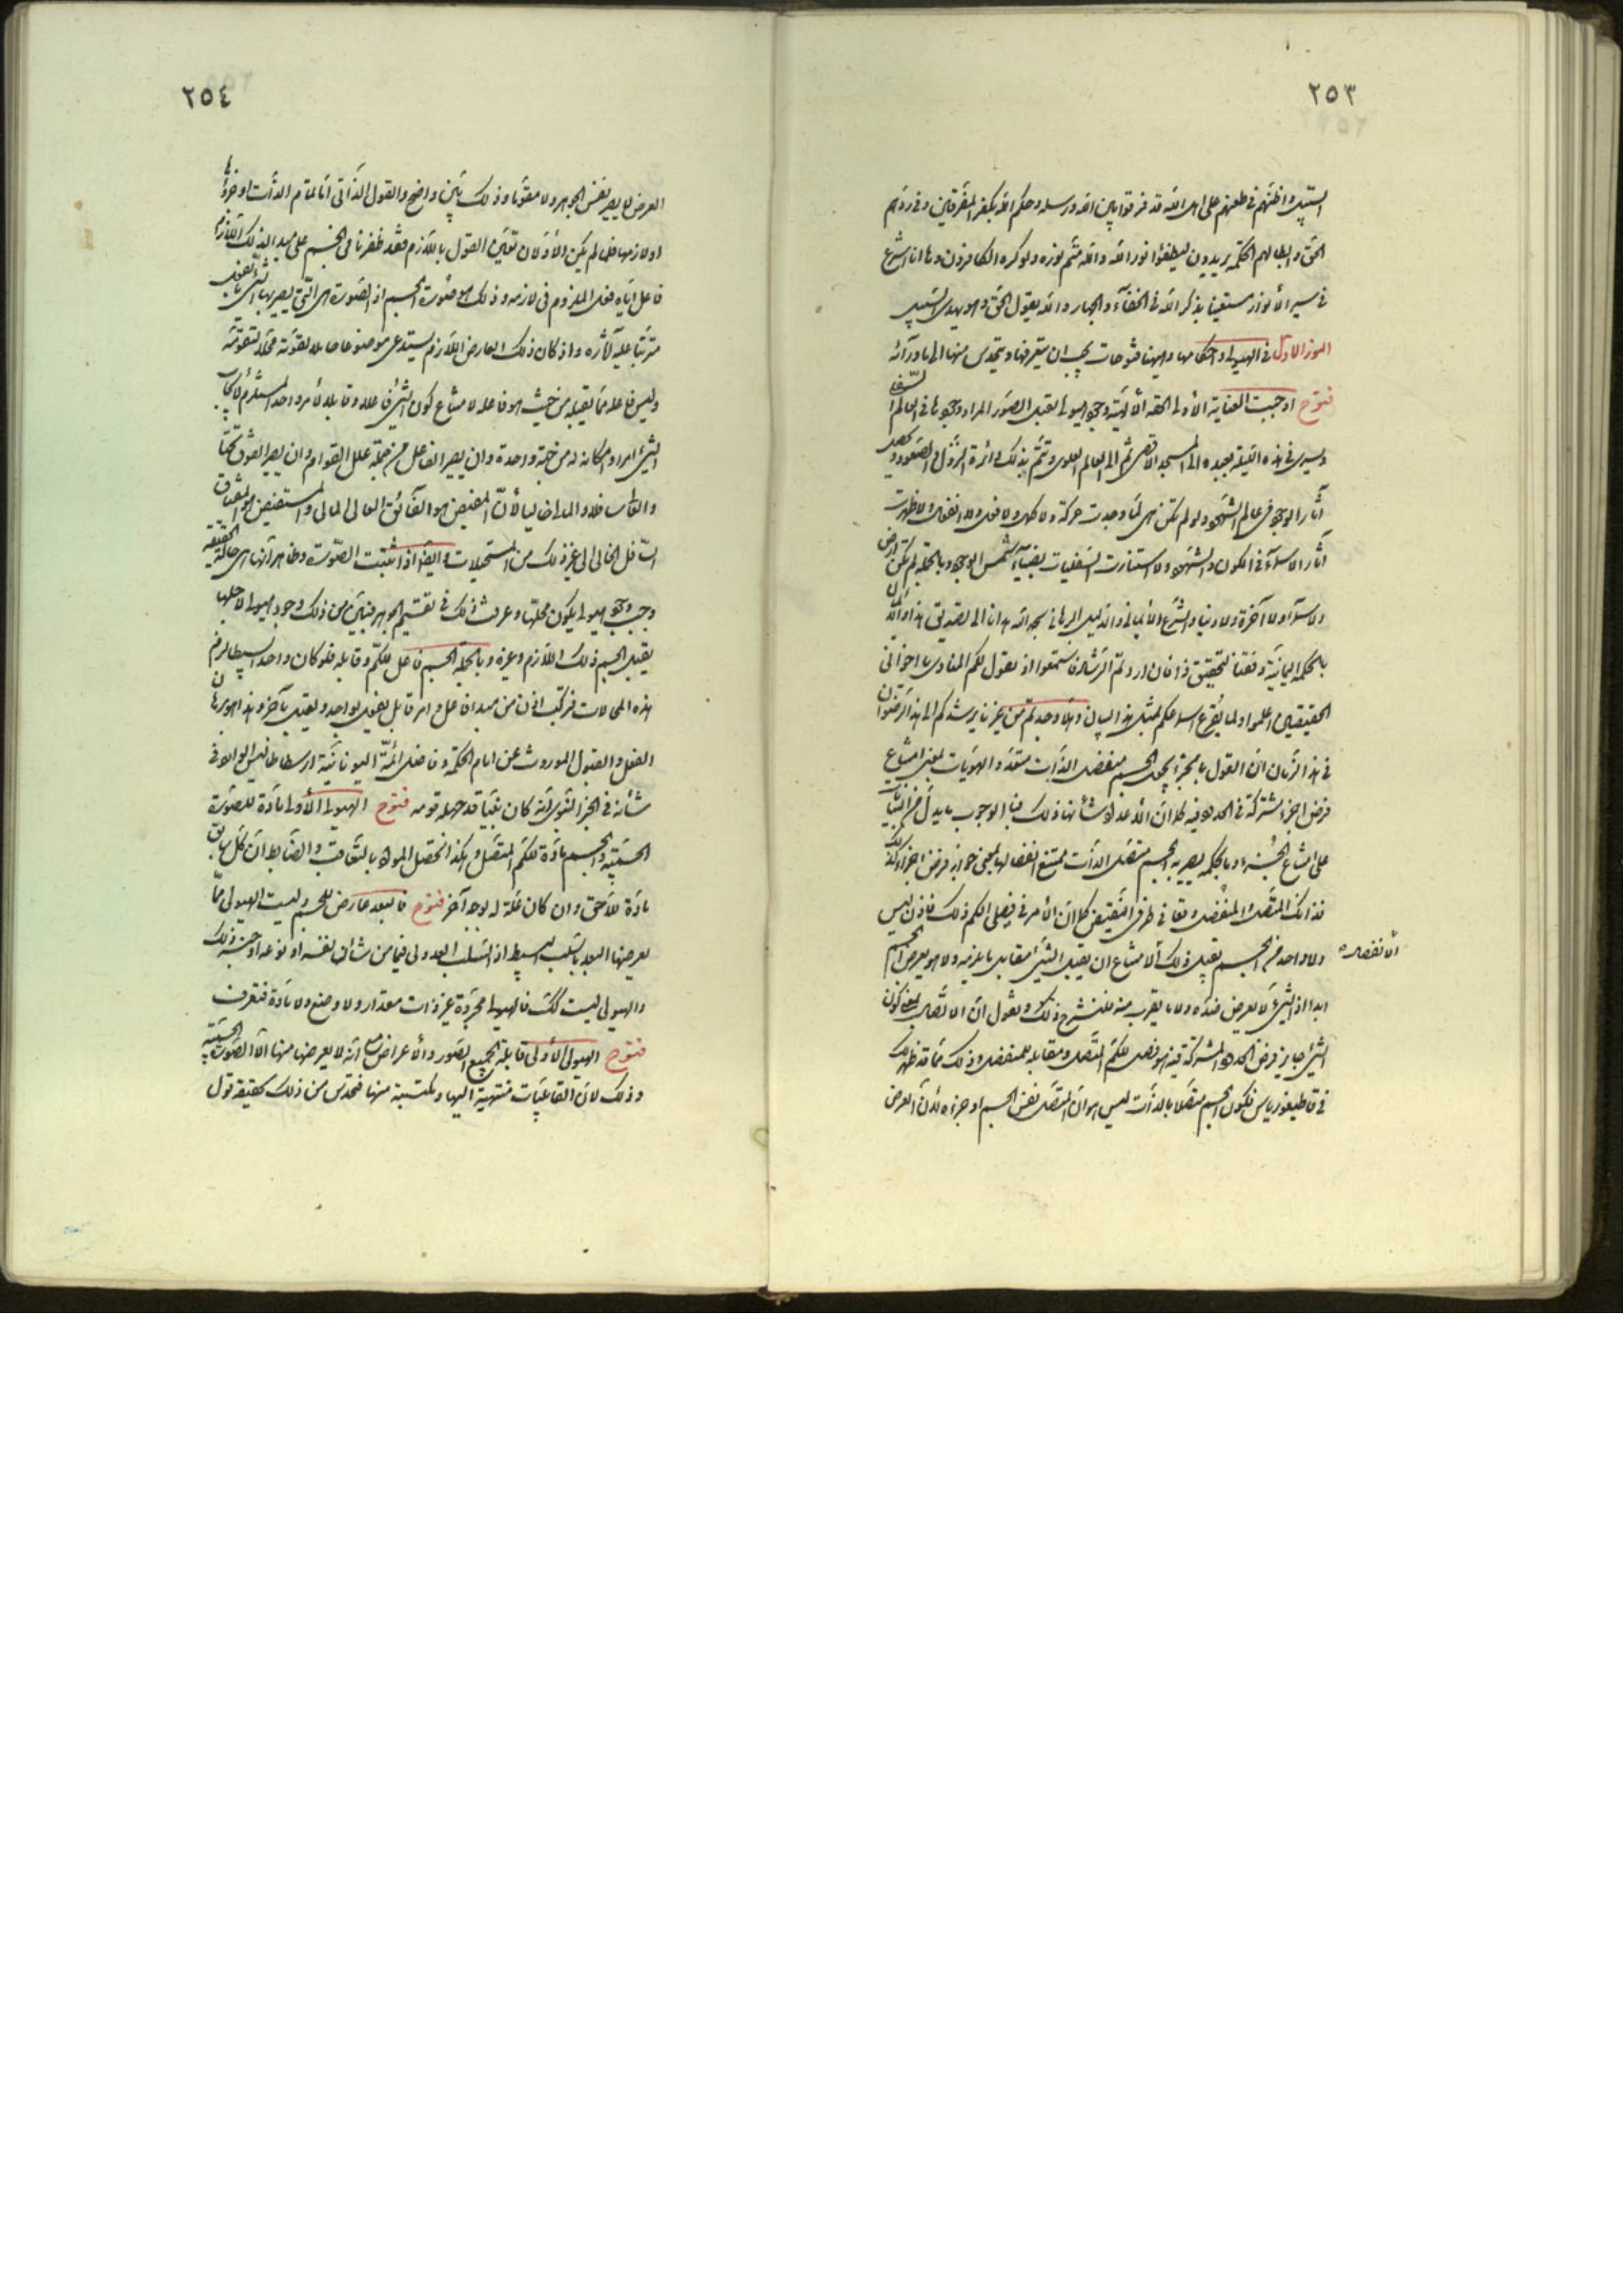 ٢٥٣
السبيل واظنهم في طعنهم على اهل الله قد فرقوا بين الله ورسله وحكم الله بكفر المفرقين وفي ردهم
الحق وابطالهم الحكمة يريدون ليطفئوا نور الله والله متم نوره ولو كره الكافرون وها انا اشرع
في سير الأنوار مستعينا بذكر الله في الخفآء والجهار والله يقول الحق وهو يهدي السبيل
النور الاول في الهيولى واحكامها وههنا فتوحات يجب ان يتعرفها ويتحدس منها الى ماورآئه
فتوح اوجبت العناية الأولى الحقة الألهية وجود هيولى تقبل الصور المراد وجودها في العالم السفلي
ويسري في هذه الليلة بعبده الى المسجد الاقصى ثم الى العالم العلوي وتتم بذلك دائرة النزول والصعود
آثار الوجود في عالم الشهود ولو لم تكن هي لما وجدت حركة ولا كمال ولا فعل ولا انفعال ولا ظهرت
آثار الاسمآء في الكون والشهود ولا استنارت السفليات بضيآء شمس الوجود وبالجملة لم تكن ارض
ولا سمآء ولا آخرة ولا دنيا والشرع الأيماني والدليل البرهاني بحمد الله هدانا الى تصديق هذا
بالحكمة اليمانية وفقنا لتحقيق ذا فان اردتم الرشاد فاستمعوا اذ يقول لكم المنادي يا اخواني
الحقيقيين اعلموا ولما يقرع اسماعكم بمثل هذا البيان ولا وجدتم من غيرنا يرشدكم الى هذا الرضوان
في هذا الزمان ان القول بالجزء يجعل الجسم منفصل الذات متعدد الهويات بمعنى امتناع
فرض اجزاء مشتركة في الحدود فيه كما ان الأعداد شأنها ذلك فبالوجوب ما يدل من البينات
على امتناع الجزء وما يحكمه يصير به الجسم متصل الذات ممتنع انفصالها بمعنى جواز فرض اجزاء كذلك
فذانك المتصل والمنفصل وقعا في طرفي النقيض كما ان الأمر في فصلي الكم ذلك فاذن ليس
ولا واحد من الجسم يقبل ذلك الانفصال لامتناع ان يقبل الشيئ مقابل ما يلزمه ولا هو يعرض الجسم
ابدا اذ الشيئ لا يعرض ضده ولا ما يقرب منه فلنشرح ذلك ونقول ان الاتصال بمعنى كون
الشيئ جايز فرض الحدود المشتركة فيه هو فصل للكم المتصل ومقابله للمنفصل وذلك مما قد ظهر لك
في قاطيغورياس فيكون الجسم متصلا بالذات ليس هو ان المتصل نفس الجسم او جزءه لأن العرض
٢٥٤
العرض لا يصير نفس الجوهر ولا مقوما وذلك بين واضح والقول الذاتي اما لتمام الذات او جزؤها
او لازمها فلما لم يكن الأولان تعين القول باللازم فقد ظفرنا في الجسم على مبدأ لذلك اللازم
فاعل اياه فعل الملزوم في لازمه وذلك هو صورة الجسم اذ الصورة هي التي يصير بها الشيئ بالفعل
مترتبا عليه آثاره واذ كان ذلك العارض اللازم يستدعي موضوعا حاملا لقوته محلا لتقومه
وليس فاعله مما يقبله من حيث هو فاعله لامتناع كون الشيئ فاعلا وقابلا لأمر واحد المستلزم لايجاب
الشيئ امرا وامكانه له من جهة واحدة وان يصير الفاعل من جملة علل القوام وان يصير الفوق تحتا
والعالي سافلا والمالي خاليا لأن المفيض هو الفائق العالي المالي والمستفيض هو المحتاق
السافل الخالي الى غير ذلك من المستحيلات وايضا اذا ثبتت الصورة وظاهر انها هي حالة
وجب وجود هيولى يكون محلها وعرفت ذلك في تقسيم الجوهر فبين من ذلك وجود هيولى لاجلها
يقبل الجسم ذلك اللازم وغيره وبالجملة الجسم فاعل للكم وقابله فلو كان واحدا بسيطا لزم
هذه المحالات فتركب اذن من مبدء فاعل وامر قابل يفعل بواحد ويقبل بآخر وهذا هو برهان
الفعل والقبول الموروث عن امام الحكمة وفاضل ائمة اليونانية ارسطاطاليس الوارد في
شأنه في الخبر النبوي انه كان نبيا قد جهله قومه فتوح الهيولى الأولى مادة للصورة
الجسمية والجسم مادة للكم المتصل وهكذا تحصل المواد بالتعاقب والضابط ان كل سابق
مادة للاحق وان كان علة له بوجه آخر فتوح فالبعد عارض للجسم وليست الهيولى مما
يعرضها البعد بالسلب البسيط اذ السلب العدولي فيما من شأن نفسه او نوعه او جنسه ذلك
والهيولى ليست كذلك فالهيولى مجردة غير ذات مقدار ولا وضع ولا مادة فتعرف
فتوح الهيولى الأولى قابلة لجميع الصور والأعراض مع انه لا يعرضها منها الا الصورة الجسمية
وذلك لان القابليات منتهية اليها ومكتسبة منها فتحدس من ذلك حقيقة قول